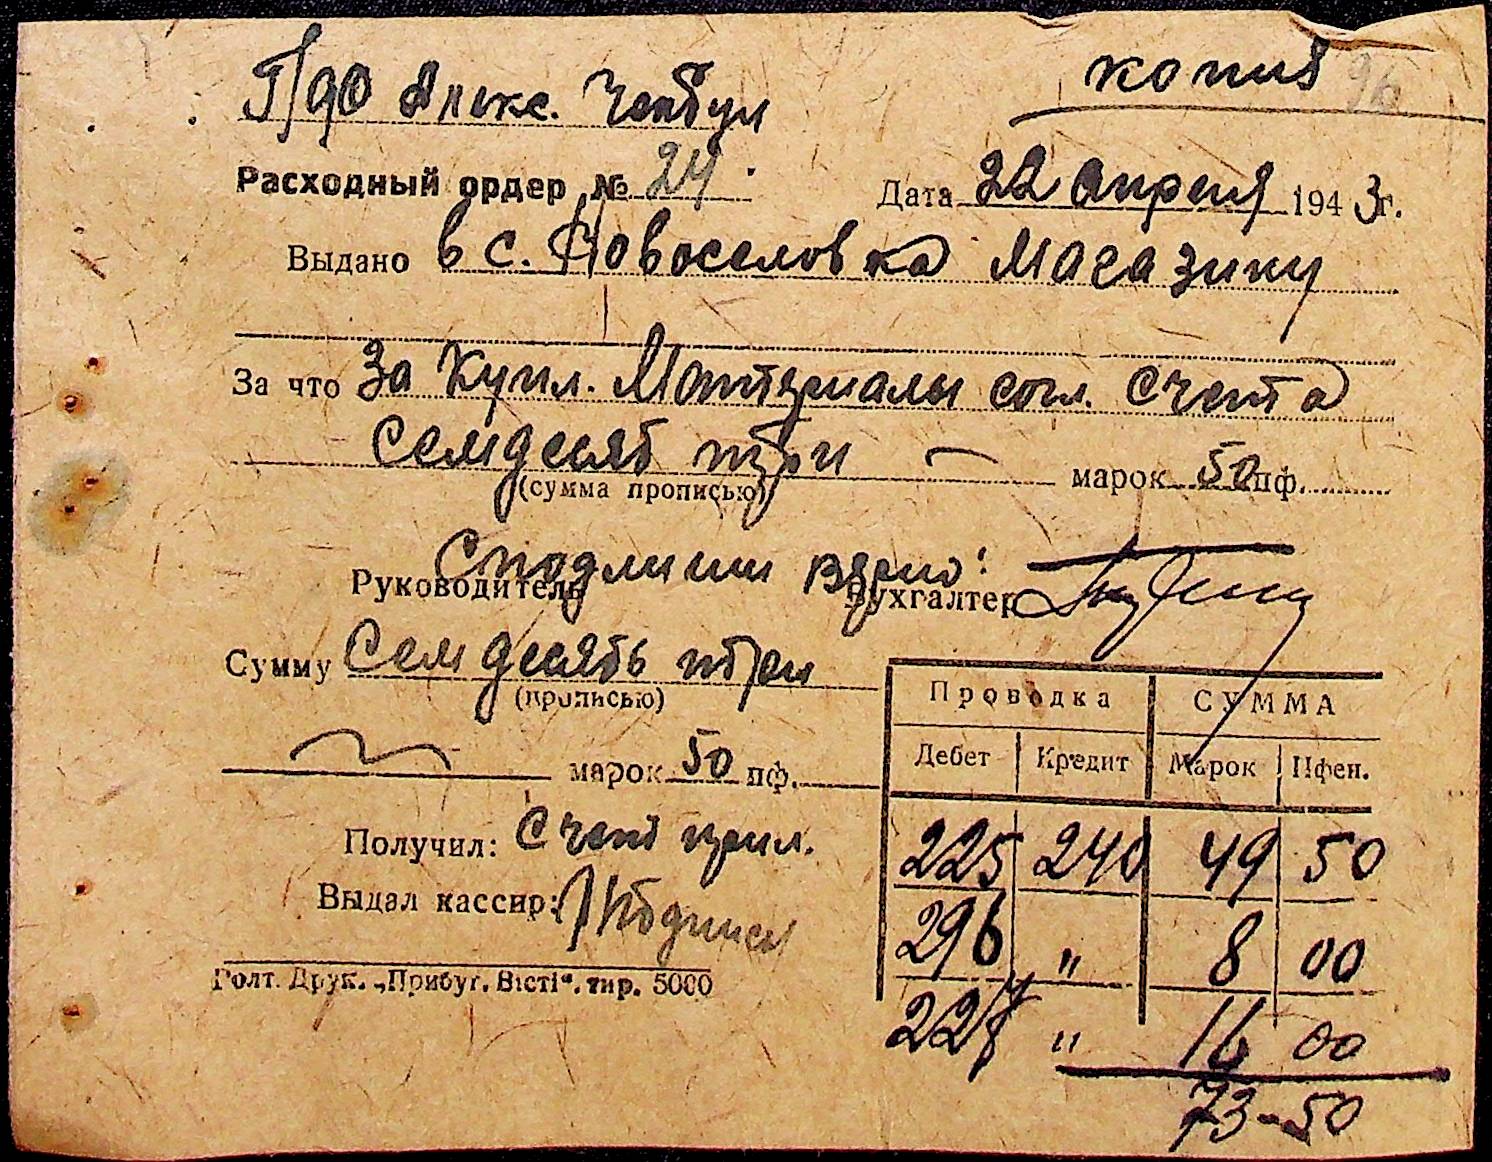 копия 96
Расходный ордер № 24 Дата 22 апреля 1943г.
Выдано в с. Новоселовка Магазину
За что За купл. Материалы согл. счета
Семдесят три — марок 50 пф.
(сумма прописью)
С подлинным верно:
Руководитель Бухгалтер
Сумму Семдесять три
(прописью)
марок 50 пф.
Получил: Счет прил.
Выдал кассир: Подписи
Голт. Друк. „Прибуг. Вісті“. тир. 5000
Проводка СУММА
Дебет Кредит Марок Пфен.
225 240 49 50
296 " 8 00
" 16 00
73-50